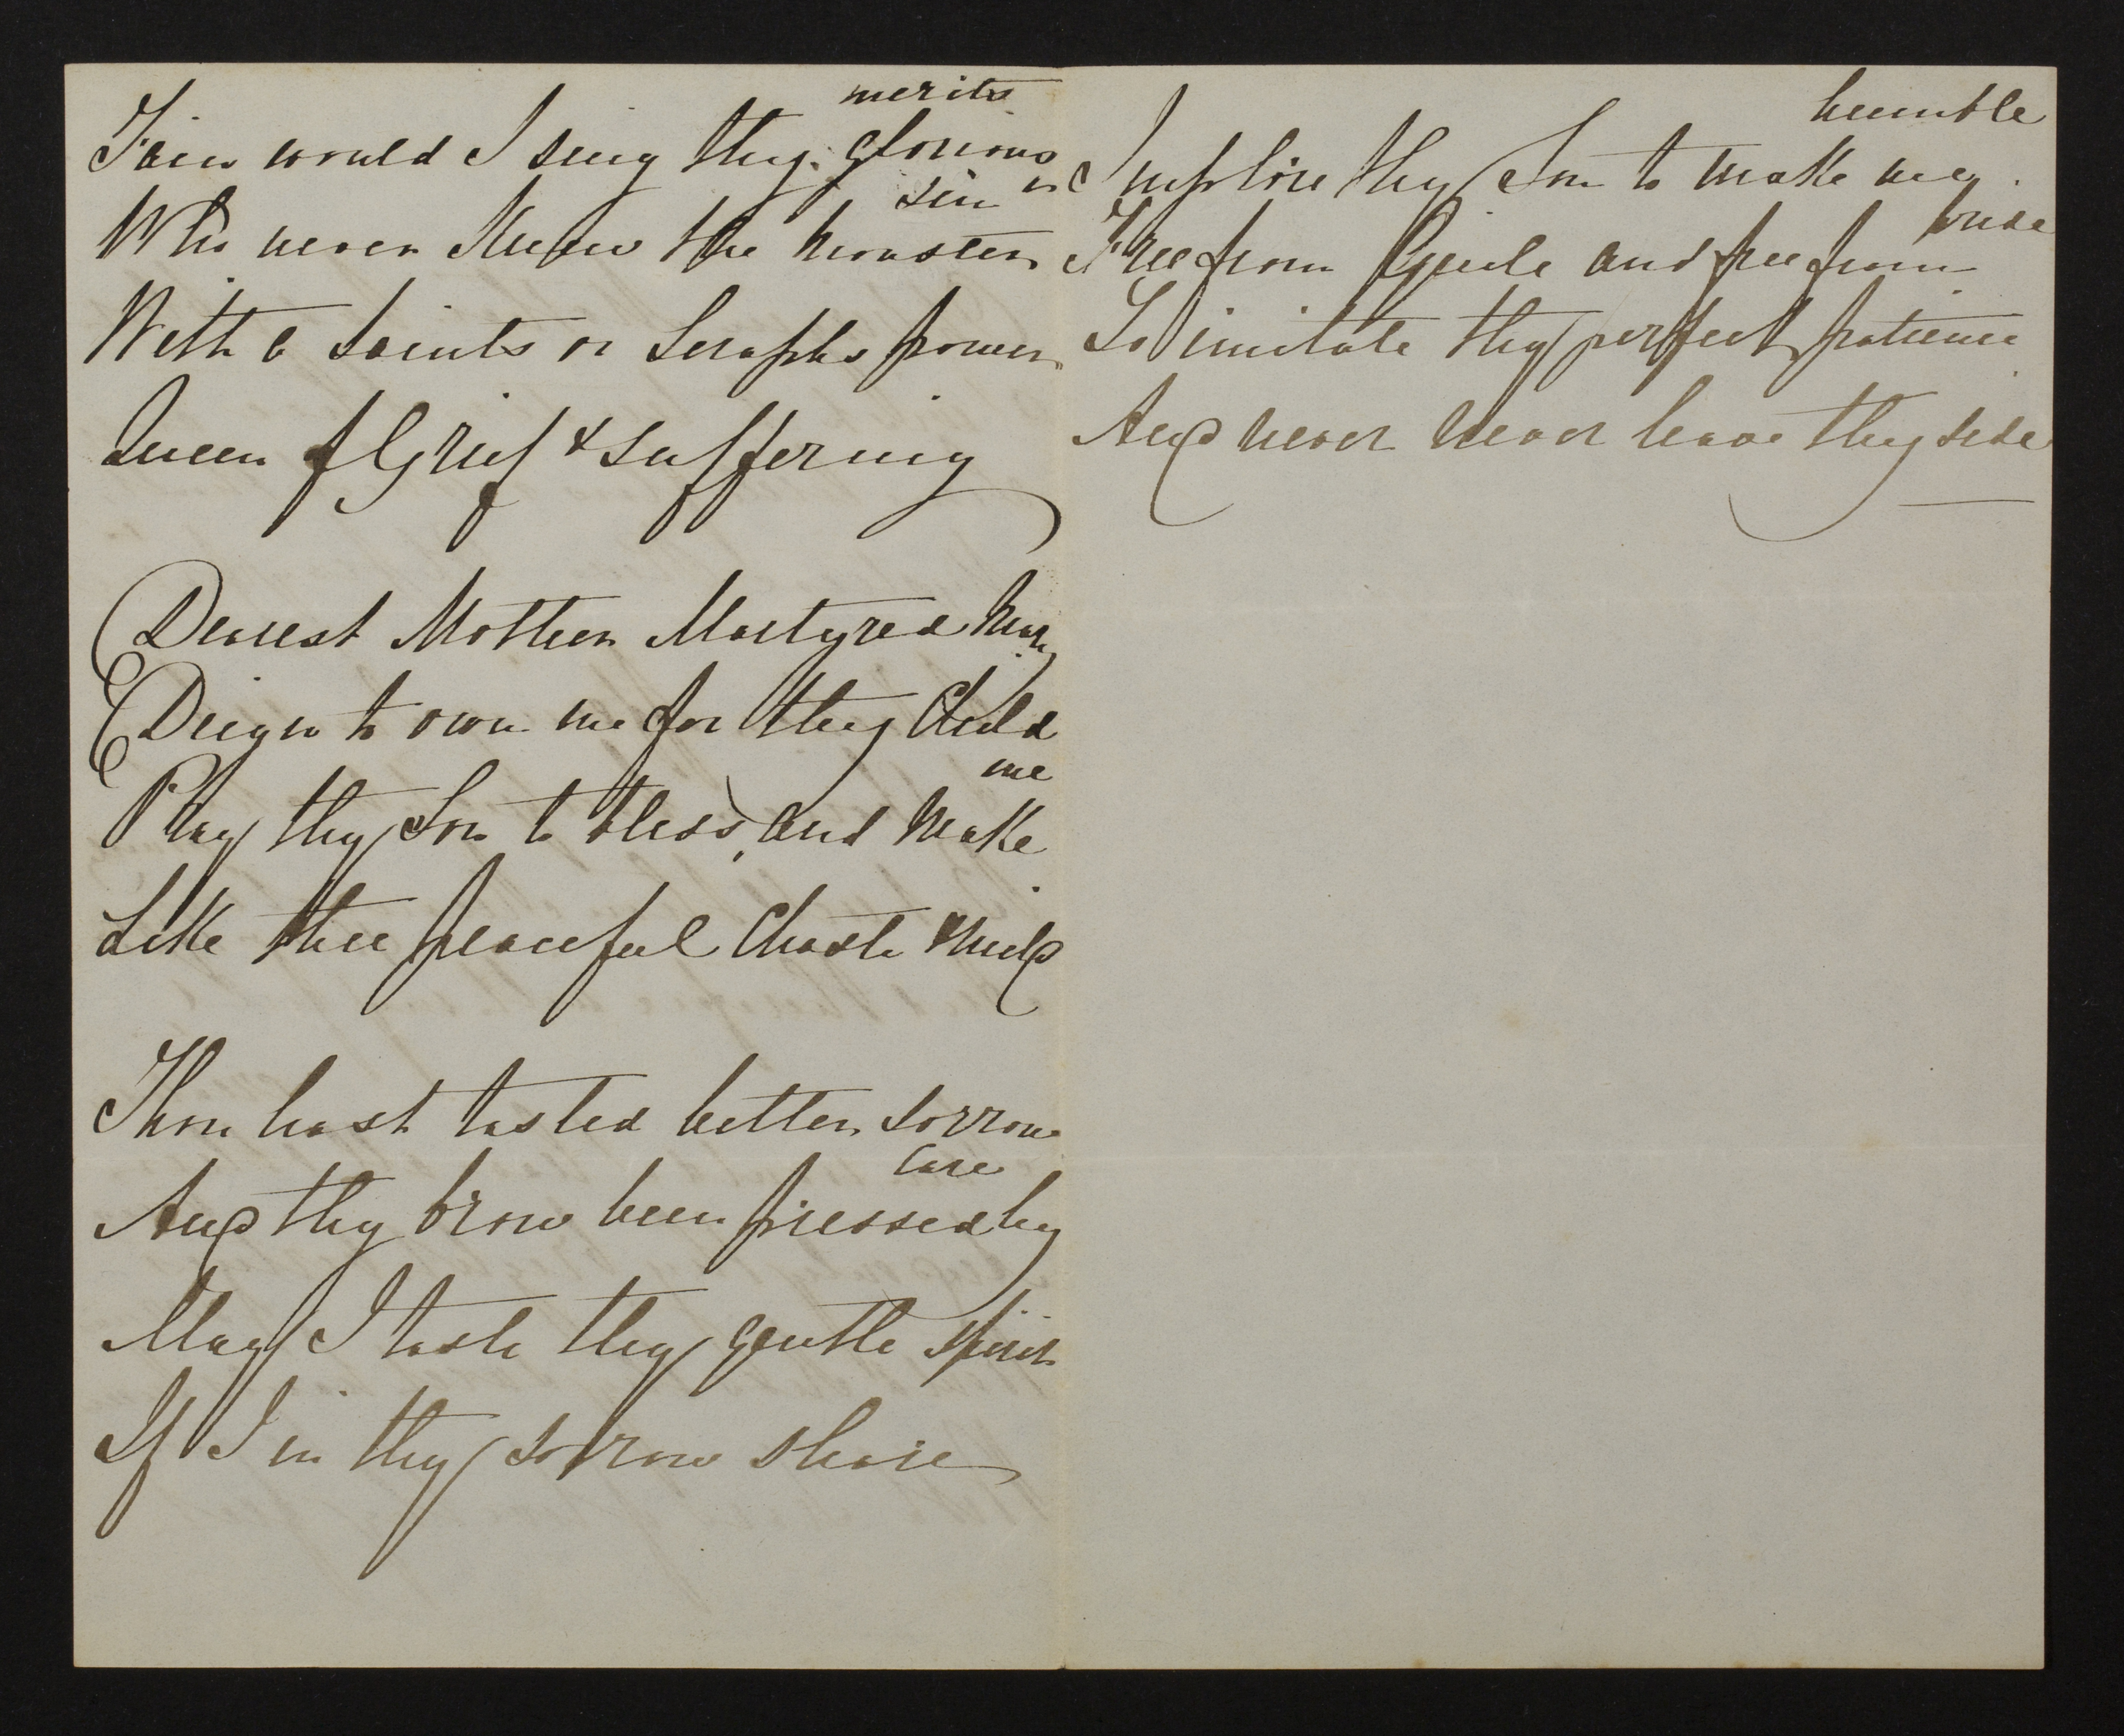 Fain would I sing thy glorious
merits
Who never knew the monster
sin
With a Saints or Seraphs power
Queen of Grief & suffering
Dearest Mother Martyred Mary
Deign to own me for thy Child
Pray thy Son to bless, and make
me
Like thee peaceful Chaste & mild
Thou hast tasted bitter sorrow
And thy brow been pressed by
Care
May I taste thy gentle spirit
If I in thy sorrow share
Implore thy Son to make me
humble
Free from Guile and free from
pride
To imitate thy perfect patience
And never never leave thy side